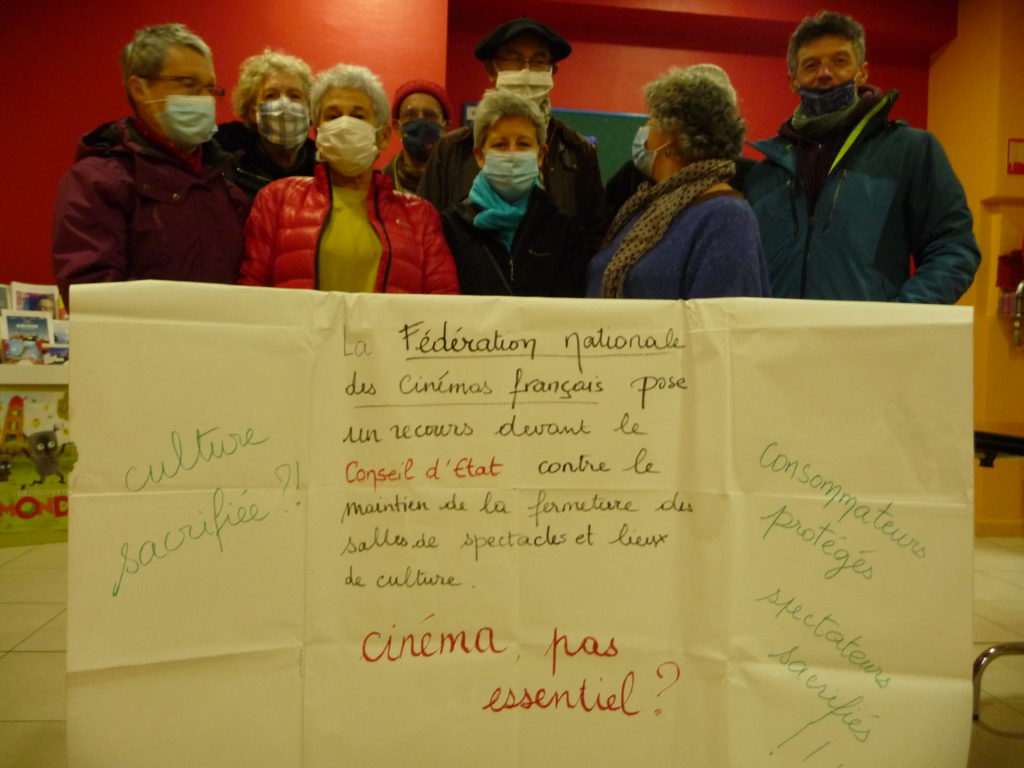 La Fédération nationale
des Cinémas français pose
un recours devant le
Conseil d'Etat contre le
maintien de la fermeture des
salles de spectacles et lieux
de culture.
cinéma, pas
essentiel ?
culture
sacrifiée ?!
consommateurs
protégés
spectateurs
sacrifiés
!!
MOND